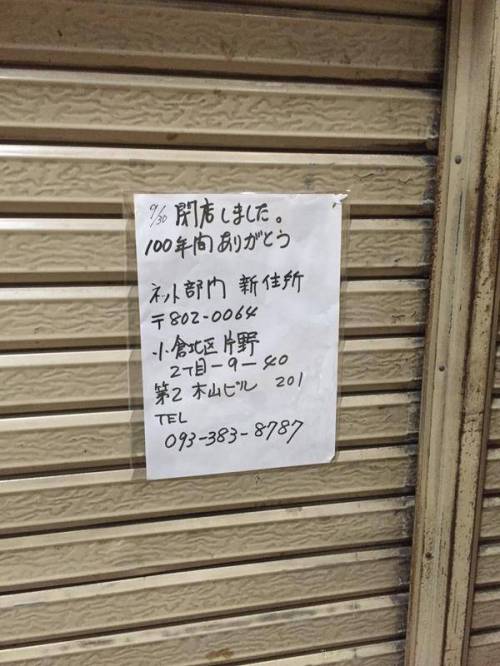 9/30 閉店しました。
100年間ありがとう
ネット部門 新住所
〒802-0064
小倉北区片野
2丁目-9-40
第2 木山ビル 201
TEL
093-383-8787